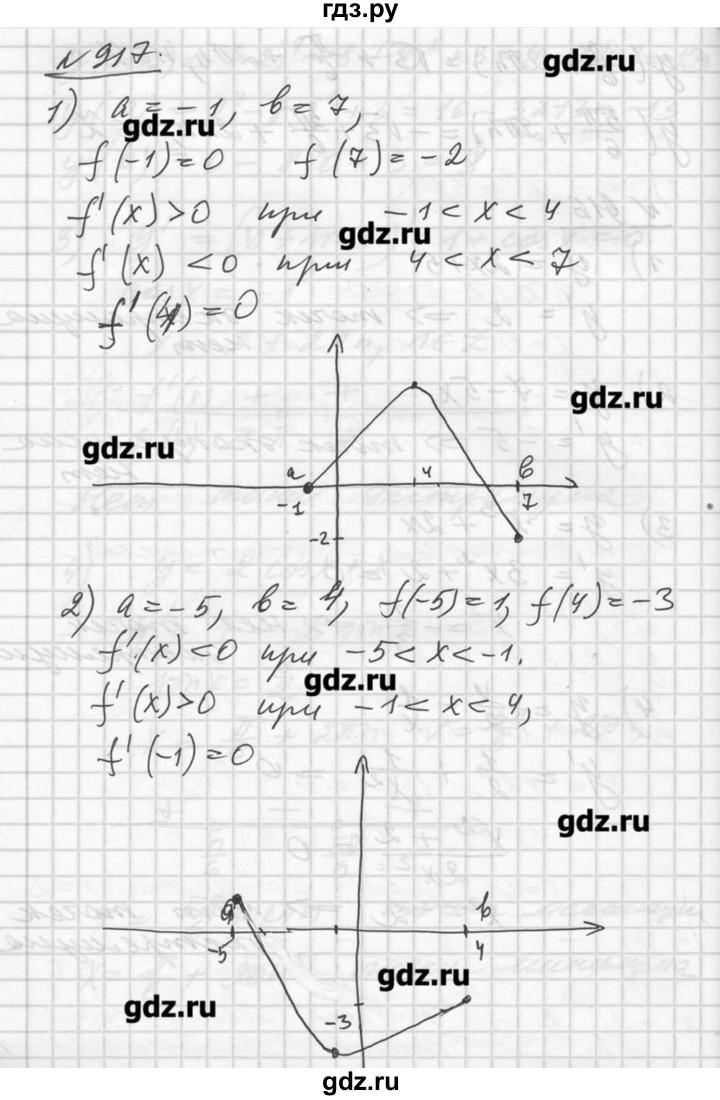 гдз.ру
№917.
gdz.ru
1) a = -1, b = 7,
gdz.ru
f(-1) = 0 f(7) = -2
f'(x) > 0 при -1 < x < 4
gdz.ru
f'(x) < 0 при 4 < x < 7
f'(4) = 0
gdz.ru
gdz.ru
a 4 b
-1 7
-2
2) a = -5, b = 4, f(-5) = 1, f(4) = -3
f'(x) < 0 при -5 < x < -1.
gdz.ru
f'(x) > 0 при -1 < x < 4,
f'(-1) = 0
gdz.ru
a b
-5 4
gdz.ru
gdz.ru
-3
gdz.ru